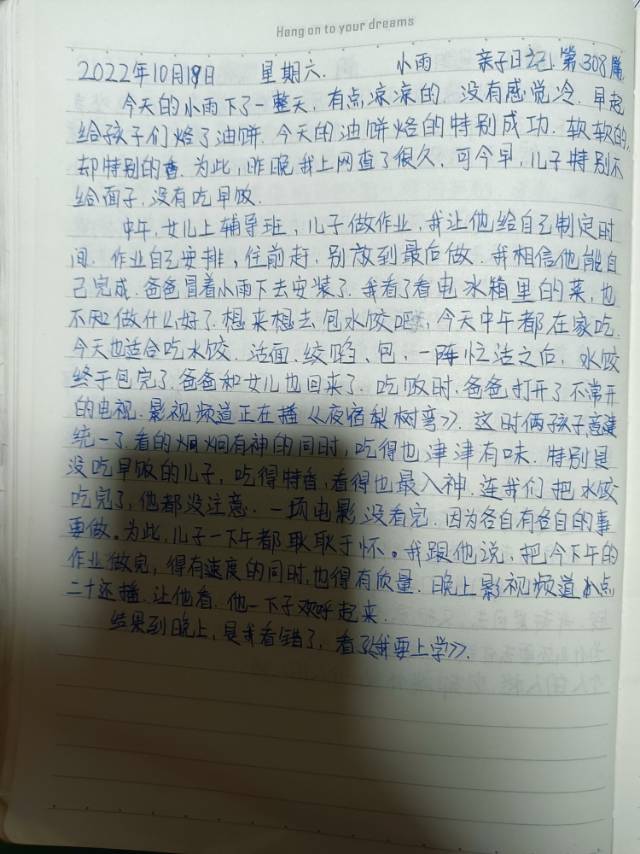 Hang on to your dreams
2022年10月19日 星期六. 小雨 亲子日记第308篇
今天的小雨下了一整天,有点凉凉的,没有感觉冷.早起
给孩子们烙了油饼.今天的油饼烙的特别成功.软软的,
却特别的香.为此,昨晚我上网查了很久,可今早,儿子特别不
给面子,没有吃早饭.
中午,女儿上辅导班,儿子做作业,我让他给自己制定时
间.作业自己安排,往前赶,别放到最后做.我相信他能自
己完成.爸爸冒着小雨下去安装了.我看了看电冰箱里的菜,也
不知做什么好了.想来想去包水饺吧,今天中午都在家吃.
今天也适合吃水饺.活面,绞馅、包,一阵忙活之后,水饺
终于包完了.爸爸和女儿也回来了.吃饭时,爸爸打开了不常开
的电视.影视频道正在播《夜宿梨树弯》.这时俩孩子意见
统一了看的炯炯有神的同时,吃得也津津有味.特别是
没吃早饭的儿子,吃得特香,看得也最入神.连我们把水饺
吃完了,他都没注意.一场电影没看完.因为各自有各自的事
要做。为此,儿子一下午都耿耿于怀。我跟他说,把今下午的
作业做完,得有速度的同时,也得有质量.晚上影视频道八点
二十还播.让他看.他一下子欢呼起来.
结果到晚上,是我看错了,看了《我要上学》.